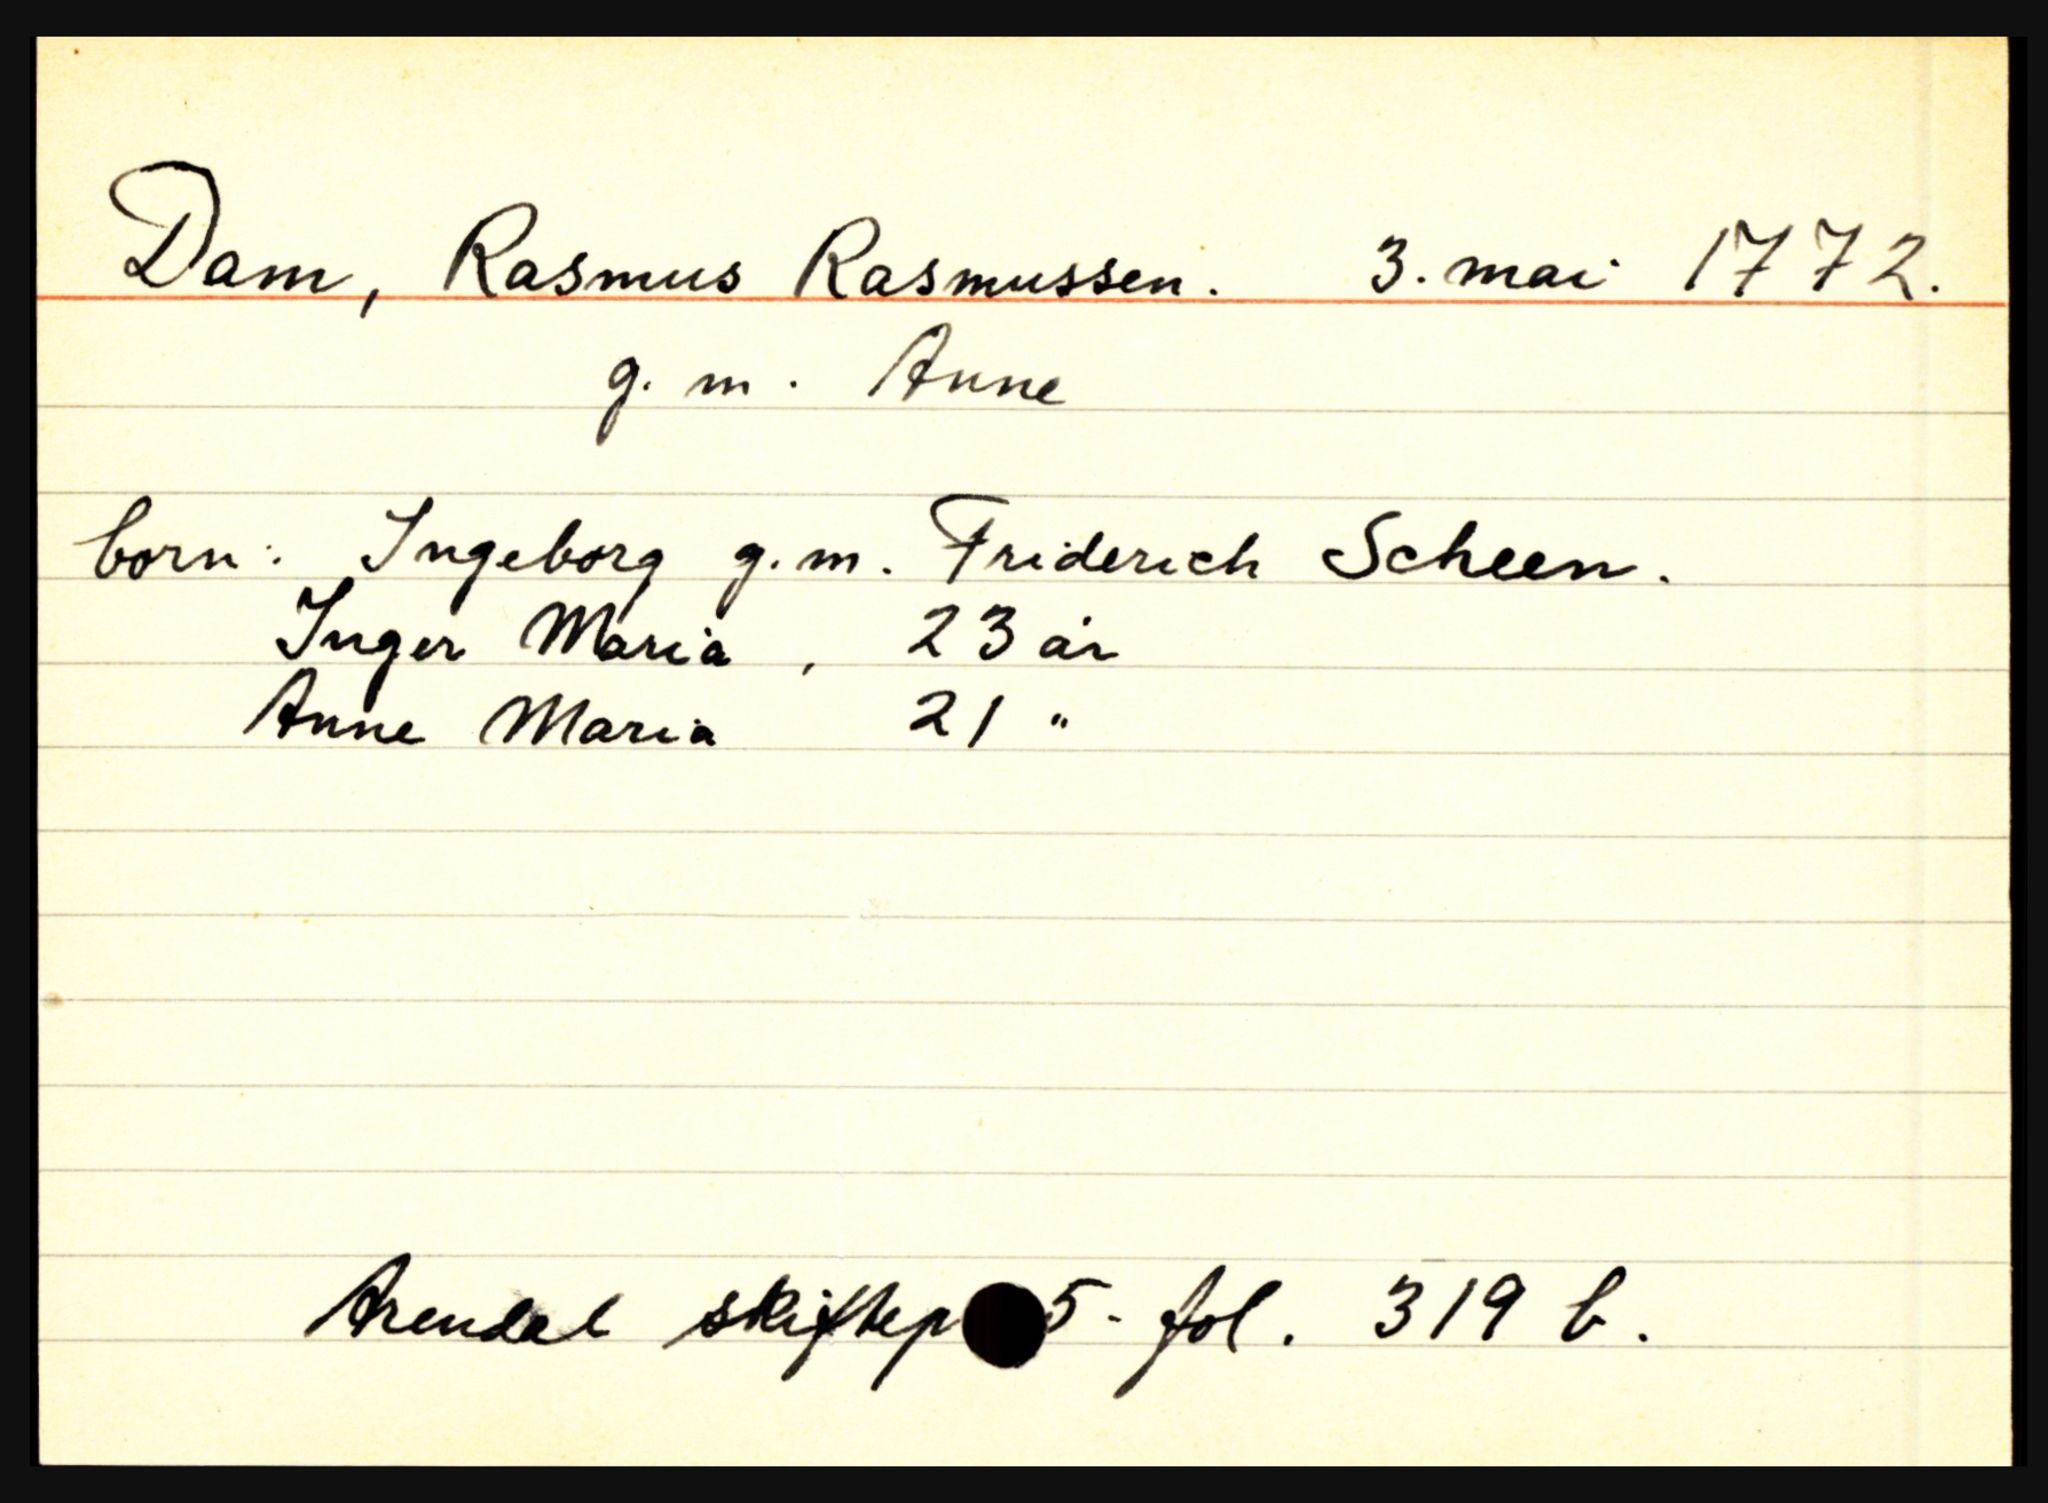 Dam, Rasmus Rasmussen. 3. mai 1772.
g. m. Anne
born: Ingeborg g. m. Friderich Scheen.
Inger Maria, 23 år
Anne Maria 21 "
Arendal skiftep 5 - fol. 319 b.